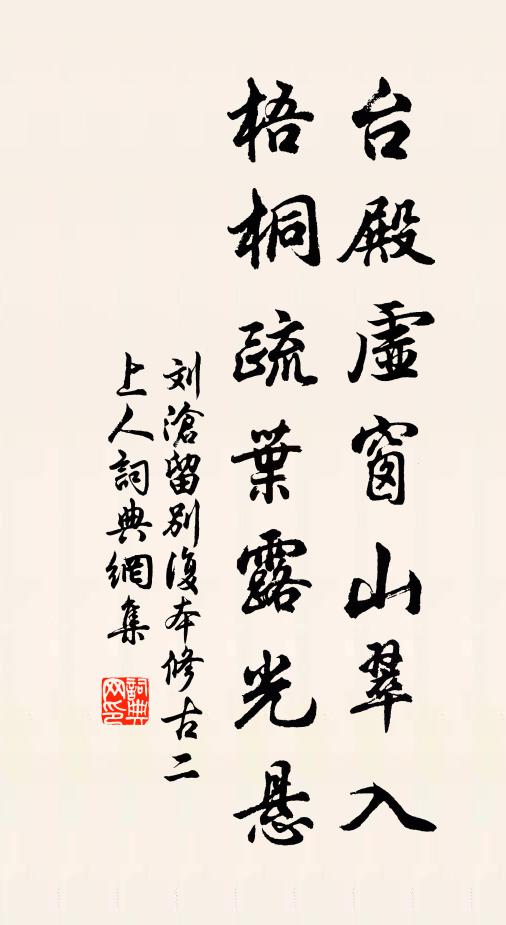 台殿虛窗山翠入
梧桐疏葉露光悬
刘滄留别復本修古二
上人詞典網集
詞典
网印